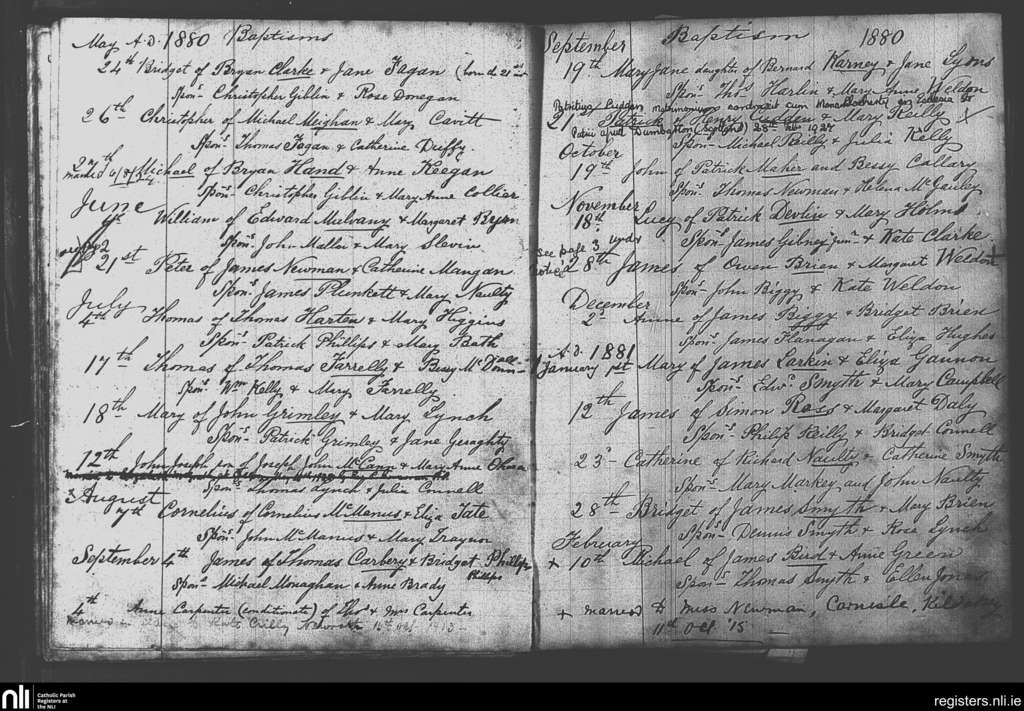 May A.D. 1880 Baptisms
24th Bridget of Bryan Clarke & Jane Fagan (born d. 21st inst
Spons- Christopher Giblin & Rose Donegan
26th Christopher of Michael Meighan & Mary Cavitt
Spons- Thomas Fagan & Catherine Duffy
27th Michael of Bryan Hand & Anne Keegan
married
Spons- Christopher Giblin & Mary Anne Collier
June
William of Edward Mulvany & Margaret
Spons- John Mallen & Mary Slevin
21st Peter of James Newman & Catherine Mangan
Spons- James Plunkett & Mary Naulty
July
4th Thomas of Thomas Harten & Mary Higgins
Spons- Patrick Phillips & Mary Bath
17th Thomas of Thomas Farrelly & Bessy McDonn-
Spons- Wm Kelly & Mary Farrelly
18th Mary of John Grimley & Mary Lynch
Spons- Patrick Grimley & Jane Geraghty
12th John Joseph son of Joseph John McCann & Mary Anne
Spons- Thomas Lynch & Julia Connell
August
7th Cornelius of Cornelius McManus & Eliza Tate
Spons- John McManus & Mary Traynor
September 4th James of Thomas Carbery & Bridget Phillips
Phillips
Spons- Michael Monaghan & Anne Brady
4th Anne Carpenter (conditionate) of Thos & Mrs Carpenter
married Kate Crilly 1913
September Baptism 1880
19th Mary Jane daughter of Bernard Karney & Jane Lyons
Spons- Thos Harlin & Mary Anne Weldon
Patritius Cuddan matrimonium contraxit cum
21 Patrick of Henry Cudden & Mary Reilly X
Patri apud Dumbarton (Scotland) 28th 1927
Spons- Michael Reilly & Julia Kelly
October
19th John of Patrick Maher and Bessy Callary
Spons- Thomas Newman & Helena McGauley
November
18th Lucy of Patrick Devlin & Mary Holms
Spons- James Gibney Junr & Kate Clarke
see page 3 under
notice 28th James of Owen Brian & Margaret Weldon
Spons- John Biggy & Kate Weldon
December
2d- Anne of James Biggy & Bridget Brien
Spons- James Flanagan & Eliza Hughes
A.D. 1881
January 1st Mary of James Larkin & Eliza Gannon
Spons- Edwd Smyth & Mary Campbell
12th James of Simon Ross & Margaret Daly
Spons- Philip Reilly & Bridget Connell
23d- Catherine of Richard Naulty & Catherine Smyth
Spons- Mary Markey and John Naulty
28th Bridget of James Smyth & Mary Brien
Spons- Dennis Smyth & Rose Lynch
February
+ 10th Michael of James Bird & Anne Green
Spons- Thomas Smyth & Ellen Jones
+ married to Miss Newman, Carnisle, Kildalkey
11th Oct '15 -
nli Catholic Parish
Registers at
the NLI
registers.nli.ie